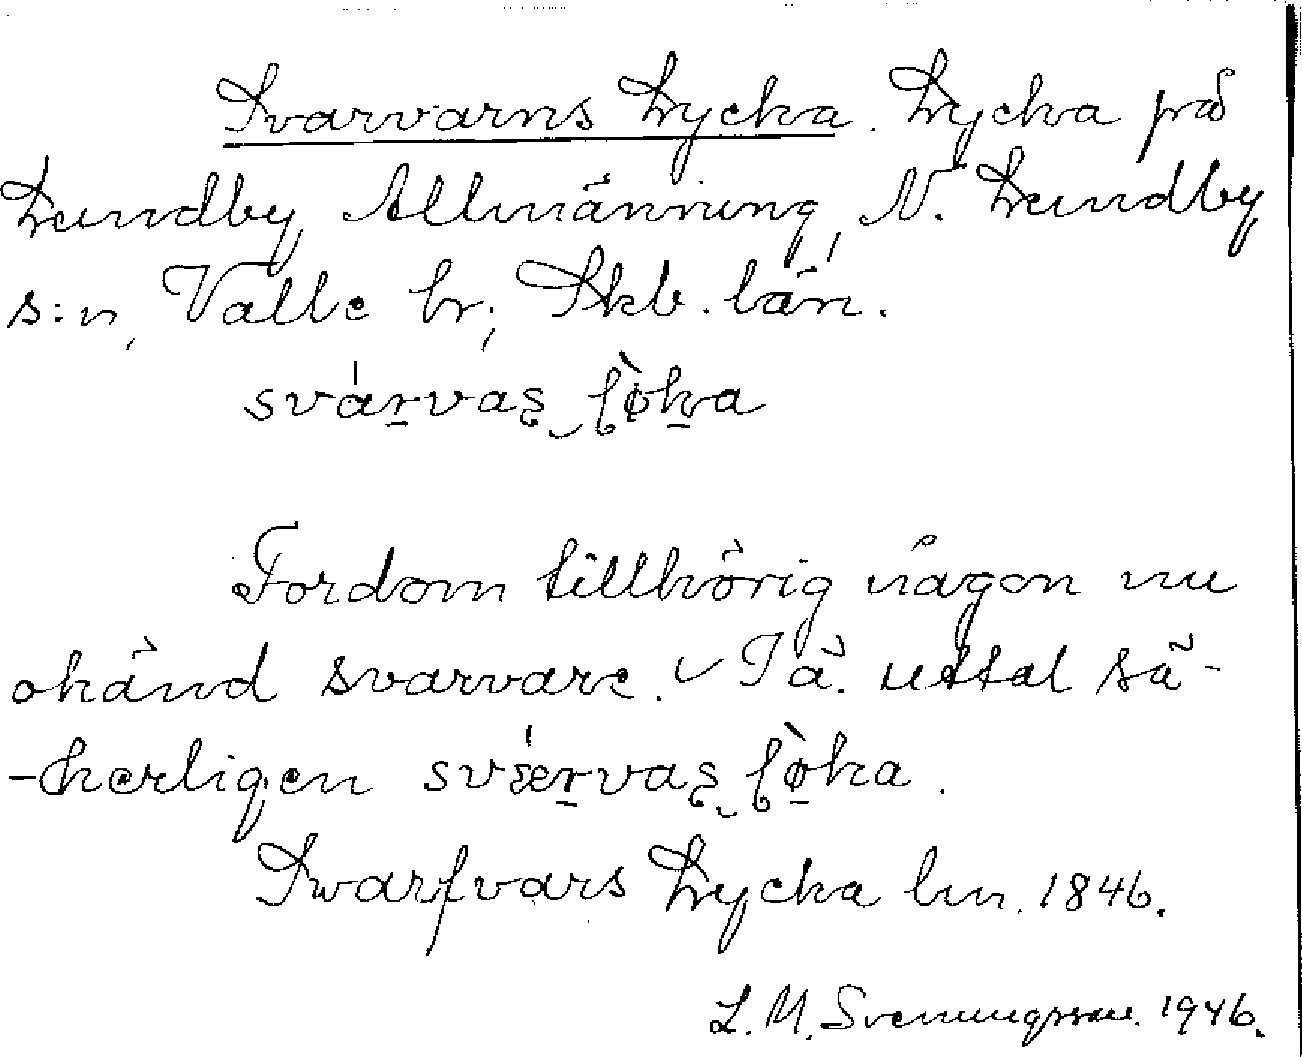 Svarvarns Lycka. Lycka på
Lundby Allmänning, N. Lundby
s:n, Valle hr; Skb. län.
svárvas lø̀ka
Fordom tillhörig någon nu
okänd svarvare. Tä. uttal sä-
-kerligen svǽrvas lø̀ka.
Swarfvars Lycka lm. 1846.
L. M. Svenungsson. 1946.